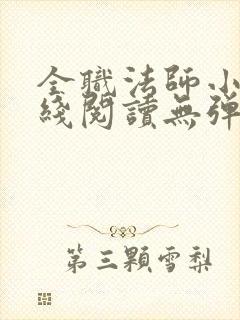 全職法師小
綫閱讀無彈
第三顆雪梨